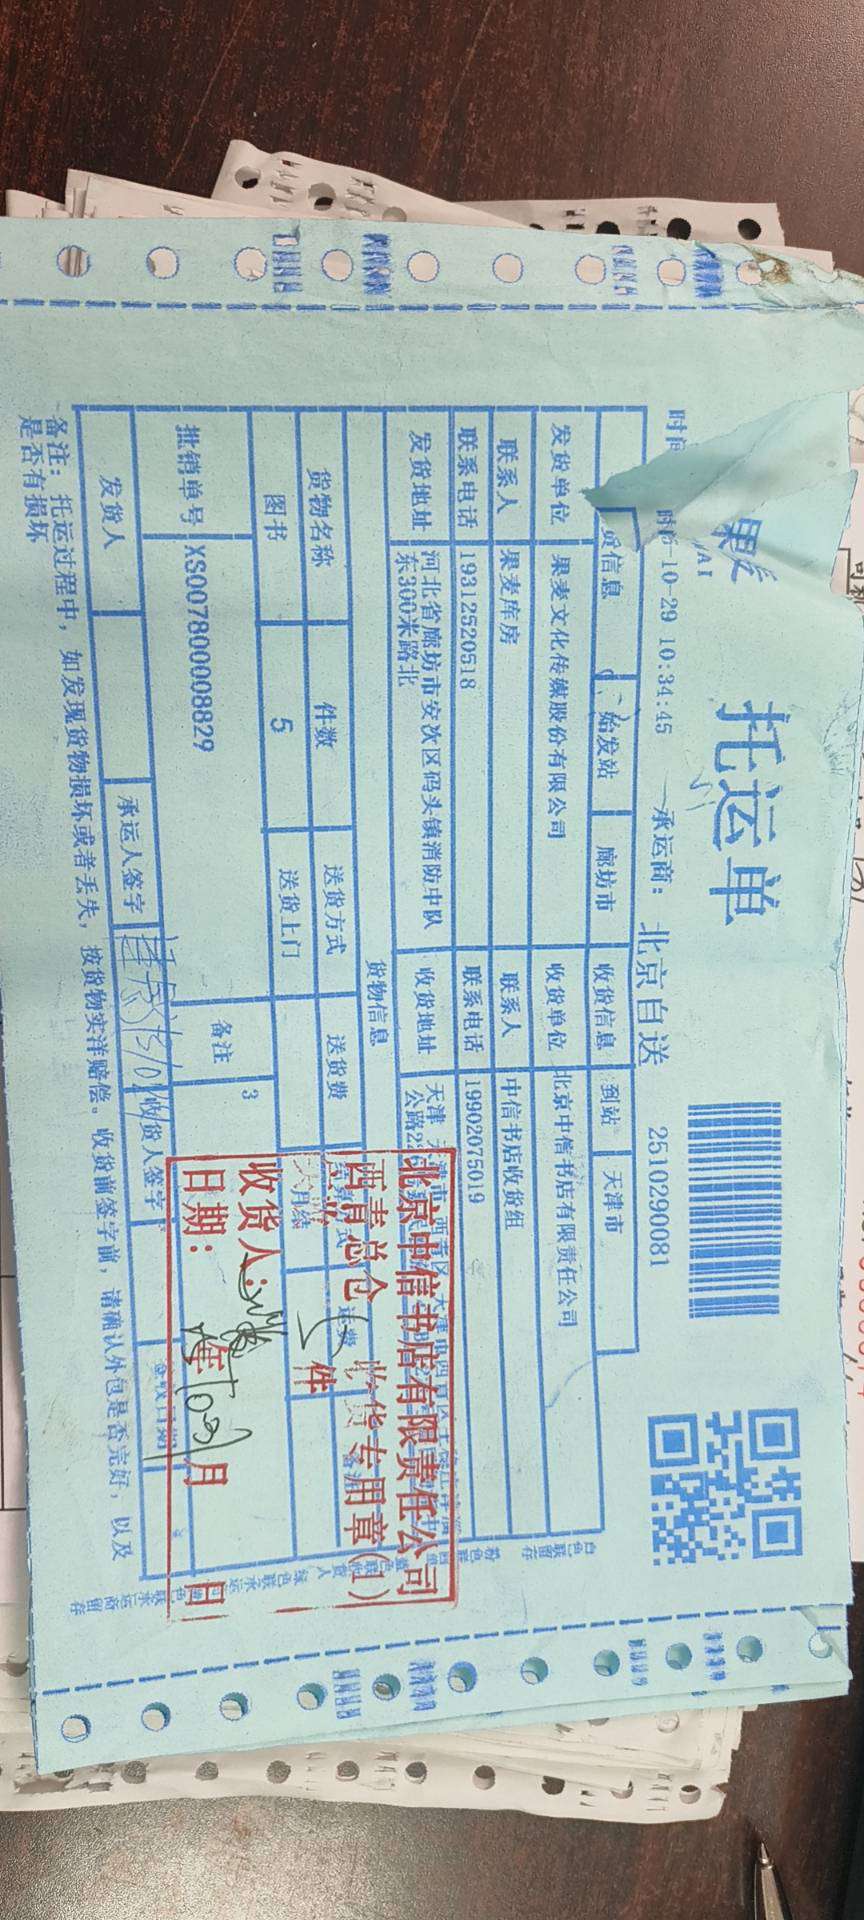 托运单
10-29 10:34:45
承运商：
北京自送
2510290081
始发站
廊坊市
收货信息
到站
天津市
发货单位
果麦文化传媒股份有限公司
收货单位
北京中信书店有限责任公司
联系人
果麦库房
联系人
中信书店收货组
联系电话
19312520518
联系电话
19902075019
发货地址
河北省廊坊市安次区码头镇消防中队
东300米路北
收货地址
货物信息
货物名称
件数
送货方式
送货费
图书
5
送货上门
批销单号
XS007800008829
备注
3
发货人
承运人签字
收货人签字
备注：托运过程中，如发现货物损坏或者丢失，按货物实洋赔偿。收货前签字前，请确认外包是否完好，以及
是否有损坏
北京中信书店有限责任公司
西青总仓 收货专用章(1)
件
收货人：
日期： 年 月 日